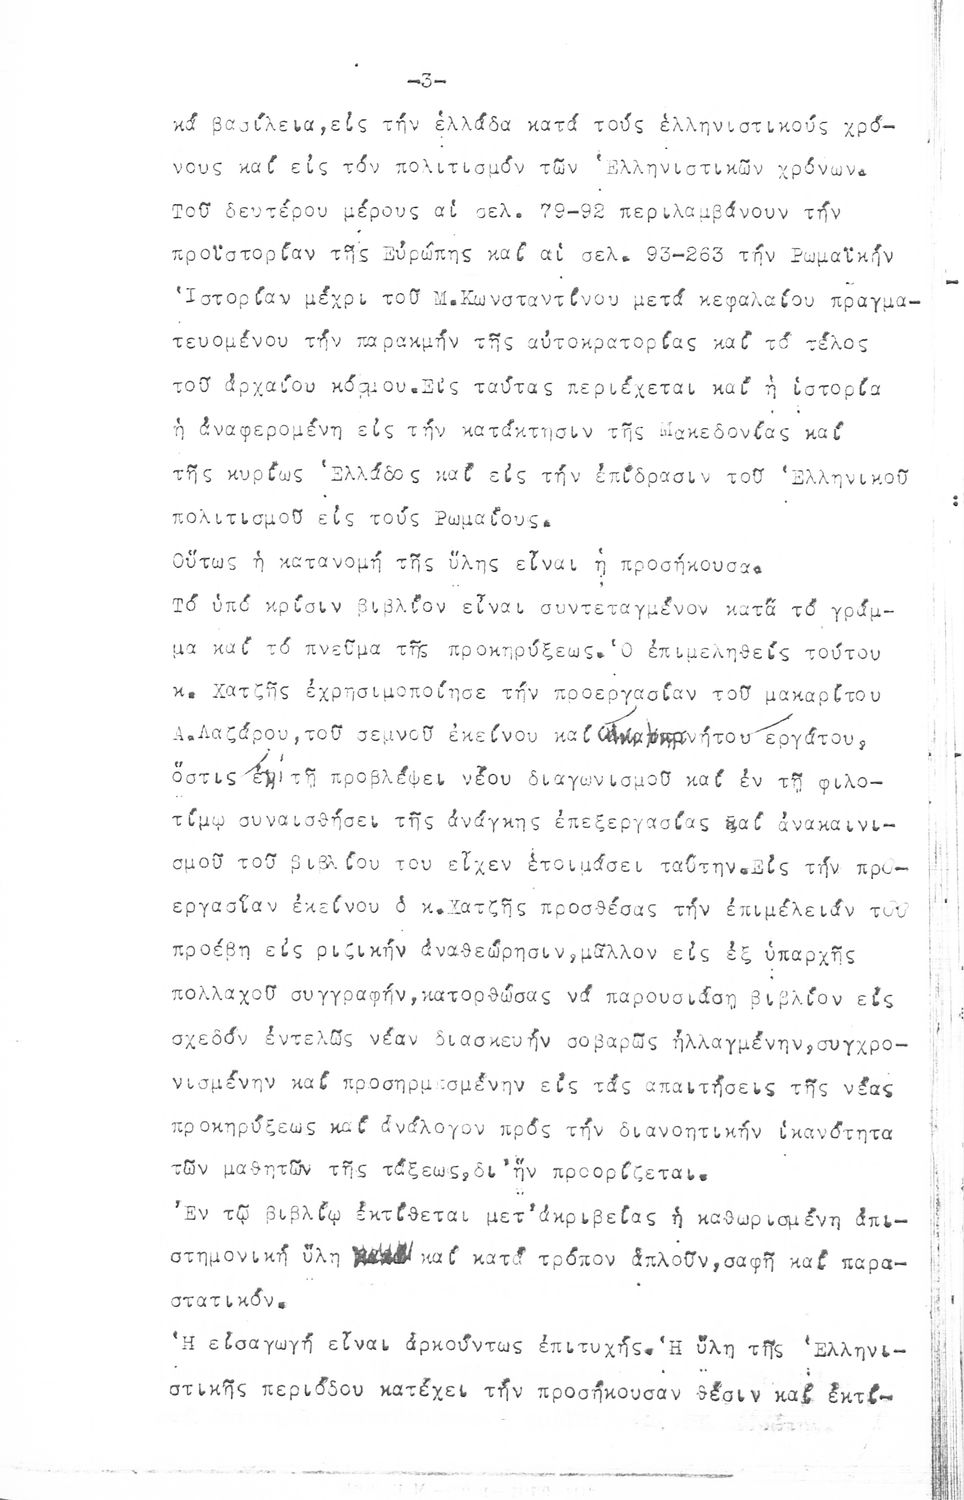 -3-
κά βασίλεια,είς τήν ἑλλάδα κατά τούς ἑλληνιστικούς χρό-
νους καί είς τόν πολιτισμόν τῶν Ἑλληνιστικῶν χρόνων.
Τοῦ δευτέρου μέρους αἱ σελ. 79-92 περιλαμβάνουν τήν
προϊστορίαν τῆς Εὐρώπης καί αἱ σελ. 93-263 τήν Ρωμαϊκήν
Ἱστορίαν μέχρι τοῦ Μ.Κωνσταντίνου μετά κεφαλαίου πραγμα-
τευομένου τήν παρακμήν τῆς αὐτοκρατορίας καί τό τέλος
τοῦ ἀρχαίου κόσμου.Είς ταύτας περιέχεται καί ἡ ἱστορία
ἡ ἀναφερομένη είς τήν κατάκτησιν τῆς Μακεδονίας καί
τῆς κυρίως Ἑλλάδος καί είς τήν ἐπίδρασιν τοῦ Ἑλληνικοῦ
πολιτισμοῦ είς τούς Ρωμαίους.
Οὕτως ἡ κατανομή τῆς ὕλης εἶναι ἡ προσήκουσα.
Τό ὑπό κρίσιν βιβλίον εἶναι συντεταγμένον κατά τό γράμ-
μα καί τό πνεῦμα τῆς προκηρύξεως.Ὁ ἐπιμεληθείς τούτου
κ. Χατζῆς ἐχρησιμοποίησε τήν προεργασίαν τοῦ μακαρίτου
Α.Λαζάρου,τοῦ σεμνοῦ ἐκείνου καί ἐργάτου,
ὅστις τῇ προβλέψει νέου διαγωνισμοῦ καί ἐν τῇ φιλο-
τίμῳ συναισθήσει τῆς ἀνάγκης ἐπεξεργασίας καί ἀνακαινι-
σμοῦ τοῦ βιβλίου του εἶχεν ἑτοιμάσει ταύτην.Είς τήν προ-
εργασίαν ἐκείνου ὁ κ.Χατζῆς προσθέσας τήν ἐπιμέλειάν του
προέβη είς ριζικήν ἀναθεώρησιν,μᾶλλον είς ἐξ ὑπαρχῆς
πολλαχοῦ συγγραφήν,κατορθώσας νά παρουσιάσῃ βιβλίον είς
σχεδόν ἐντελῶς νέαν διασκευήν σοβαρῶς ἠλλαγμένην,συγχρο-
νισμένην καί προσηρμοσμένην είς τάς απαιτήσεις τῆς νέας
προκηρύξεως καί ἀνάλογον πρός τήν διανοητικήν ἱκανότητα
τῶν μαθητῶν τῆς τάξεως,δι'ἥν προορίζεται.
Ἐν τῷ βιβλίῳ ἐκτίθεται μετ'ἀκριβείας ἡ καθωρισμένη ἐπι-
στημονική ὕλη καί κατά τρόπον ἁπλοῦν,σαφῆ καί παρα-
στατικόν.
Ἡ είσαγωγή εἶναι ἀρκούντως ἐπιτυχής.Ἡ ὕλη τῆς Ἑλληνι-
στικῆς περιόδου κατέχει τήν προσήκουσαν θέσιν καί ἐκτί-